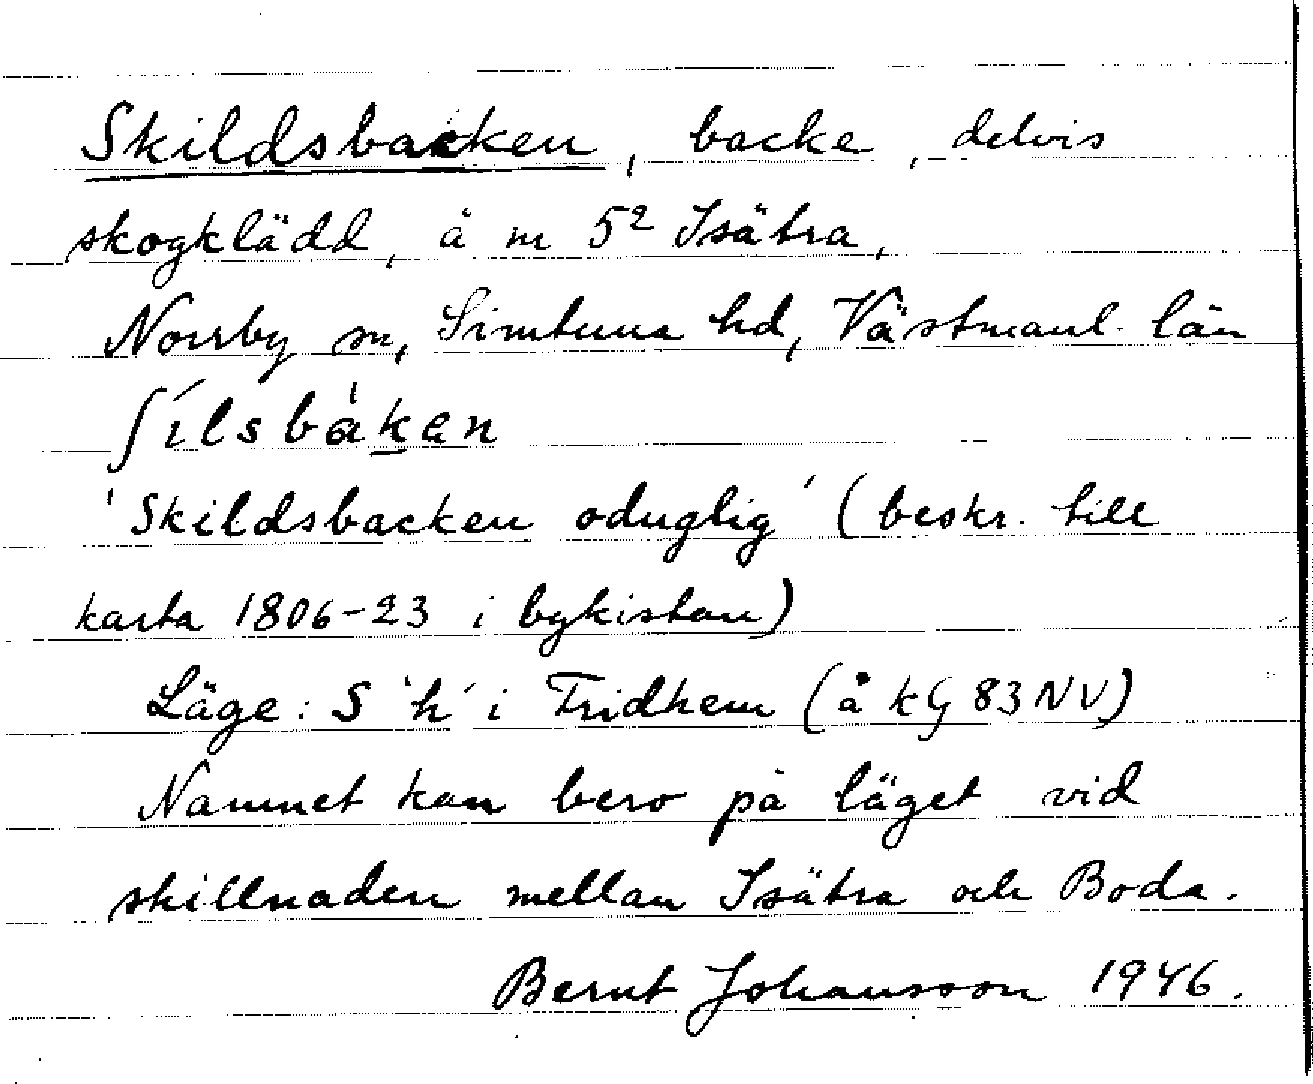 Skildsbacken, backe, delvis
skogklädd, å m 5² Isätra,
Norrby sn, Simtuna hd, Västmanl. län
ʃílsbàkan
'Skildsbacken oduglig' (beskr. till
karta 1806-23 i bykistan)
Läge: S 'h' i Fridhem (å kg 83 NV)
Namnet kan bero på läget vid
skillnaden mellan Isätra och Boda.
Bernt Johansson 1946.